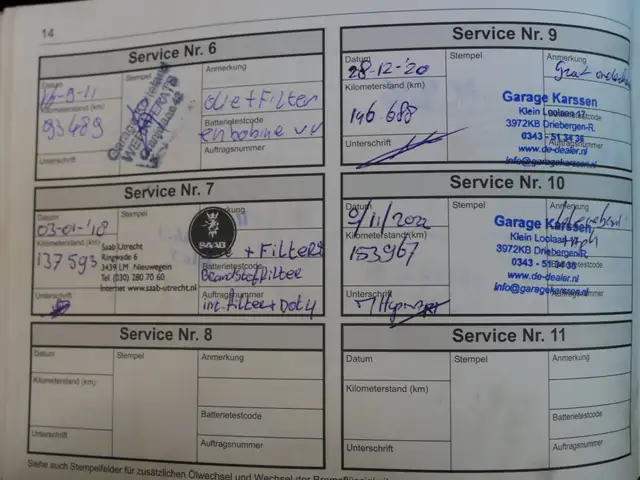 14
Service Nr. 6
Datum
Stempel
Anmerkung
16-9-11
Kilometerstand (km)
93489
olie + Filter
Batterietestcode
en bobine vv
Unterschrift
Auftragsnummer
Service Nr. 7
Datum
Stempel
03-01-'18
SAAB
Kilometerstand (km)
137593
+ Filters
Saab Utrecht
Ringwade 6
3439 LM Nieuwegein
Tel. (030) 280 70 60
Internet www.saab-utrecht.nl
Batterietestcode
Brandstoffilter
Unterschrift
Auftragsnummer
int. Filter + Dot 4
Service Nr. 8
Datum
Stempel
Anmerkung
Kilometerstand (km)
Batterietestcode
Unterschrift
Auftragsnummer
Service Nr. 9
Datum
Stempel
Anmerkung
28-12-'20
Kilometerstand (km)
146.688
Garage Karssen
Klein Loolaan 17
3972KB Driebergen-R.
0343 - 51 34 36
www.de-dealer.nl
info@garagekarssen.nl
Unterschrift
Auftragsnummer
Service Nr. 10
Datum
Stempel
Anmerkung
9/11/2022
Kilometerstand (km)
153967
Garage Karssen
Klein Loolaan
3972KB Driebergen-R.
0343 - 51 34 36
www.de-dealer.nl
info@garagekarssen.nl
Unterschrift
Service Nr. 11
Datum
Stempel
Anmerkung
Kilometerstand (km)
Batterietestcode
Unterschrift
Auftragsnummer
Siehe auch Stempelfelder für zusätzlichen Ölwechsel und Wechsel der Bremsflüssigkeit